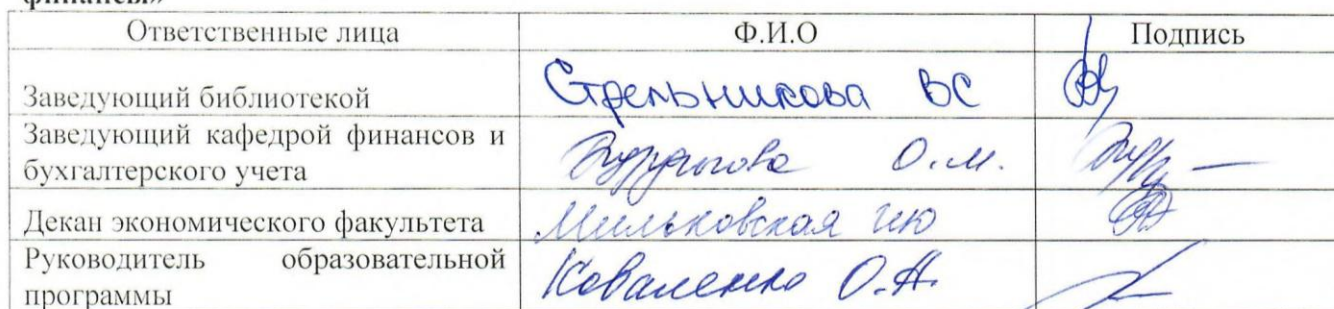 финансы»
Ответственные лица Ф.И.О Подпись
Заведующий библиотекой Стрельникова ВС
Заведующий кафедрой финансов и
бухгалтерского учета О.М.
Декан экономического факультета Мильковская ИЮ
Руководитель образовательной
программы Коваленко О.А.